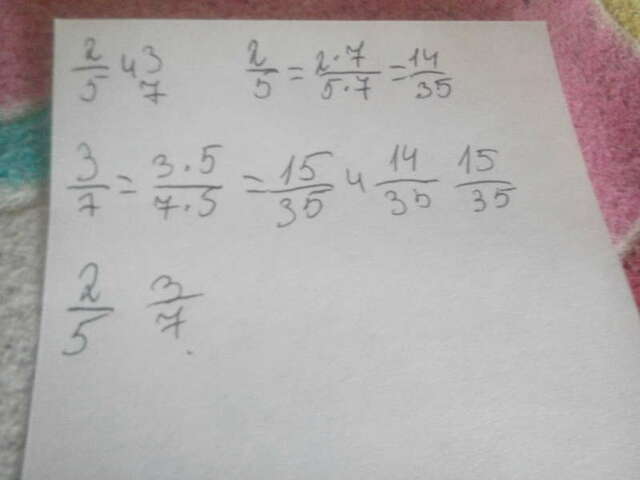 2/5 и 3/7 2/5 = 2·7/5·7 = 14/35
3/7 = 3·5/7·5 = 15/35 и 14/35 15/35
2/5 3/7